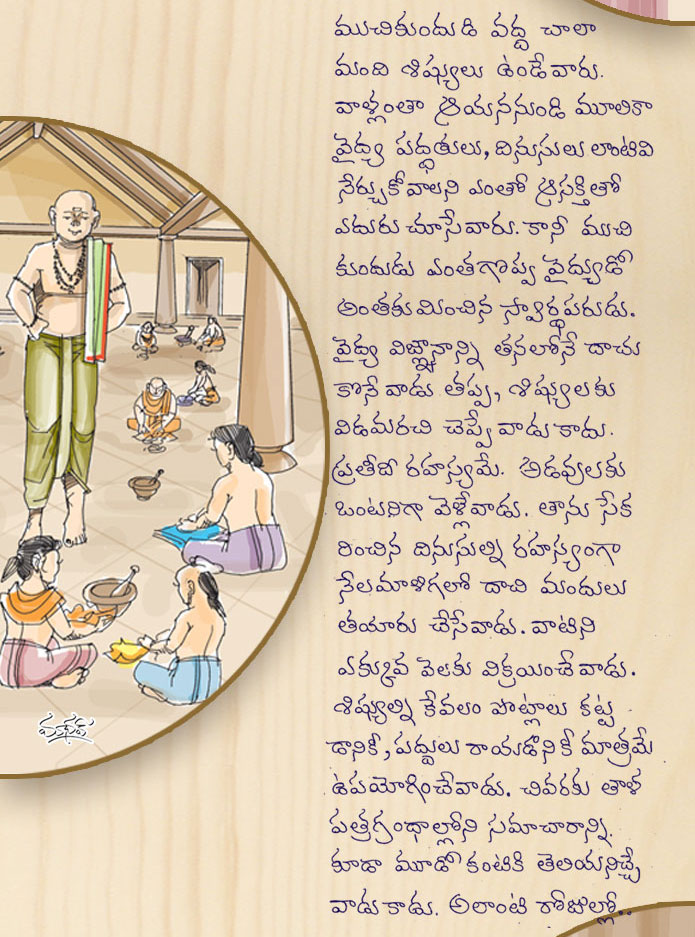 ముచికుందుడి వద్ద చాలా
మంది శిష్యులు ఉండేవారు.
వాళ్లంతా ఆయననుండి మూలికా
వైద్య పద్ధతులు, దినుసులు లాంటివి
నేర్చుకోవాలని ఎంతో ఆసక్తితో
ఎదురు చూసేవారు. కానీ ముచి
కుందుడు ఎంతగొప్ప వైద్యుడో
అంతకుమించిన స్వార్థపరుడు.
వైద్య విజ్ఞానాన్ని తనలోనే దాచు
కొనే వాడు తప్ప, శిష్యులకు
విడమరచి చెప్పే వాడు కాదు.
ప్రతీదీ రహస్యమే. అడవులకు
ఒంటరిగా వెళ్లేవాడు. తాను సేక
రించిన దినుసుల్ని రహస్యంగా
నేలమాళిగలో దాచి మందులు
తయారు చేసేవాడు. వాటిని
ఎక్కువ వెలకు విక్రయించేవాడు.
శిష్యుల్ని కేవలం పొట్లాలు కట్ట
డానికీ, పద్దులు రాయడానికీ మాత్రమే
ఉపయోగించేవాడు. చివరకు తాళ
పత్రగ్రంథాల్లోని సమాచారాన్ని
కూడా మూడో కంటికి తెలియనిచ్చే
వాడు కాదు. అలాంటి రోజుల్లో..